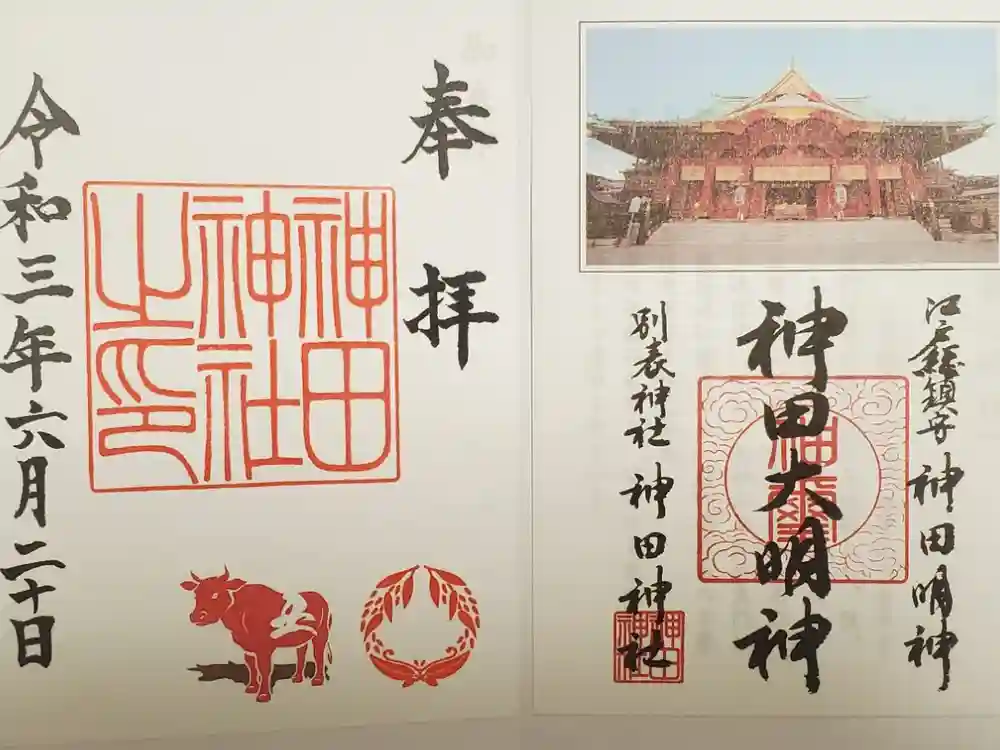 江戸総鎮守 神田明神
神田大明神
神璽
別表神社 神田神社
神田神社
奉拝
神田神社之印
令和三年六月二十日